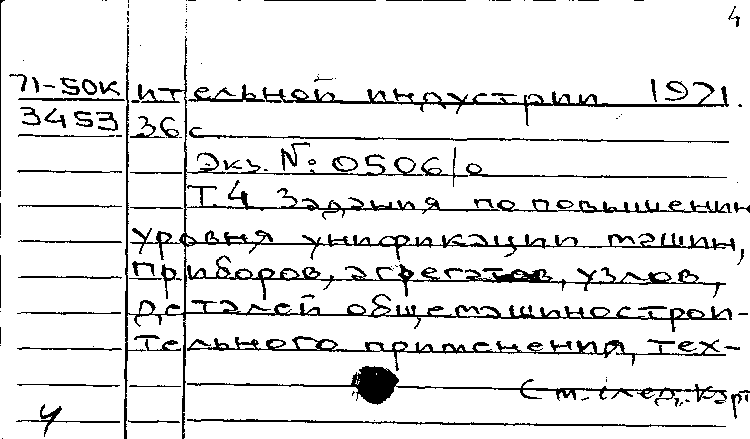 4
71-50К ительной индустрии 1971.
3453 36 с.
Экз. №: 0506/о
Т.4 Задания по повышении
уровня унификации машин,
приборов, агрегатов, узлов,
деталей общемашинострои-
тельного применения, тех-
См. след. карт